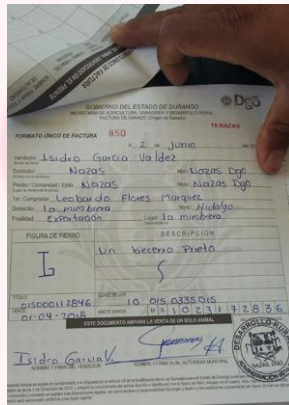 GOBIERNO DEL ESTADO DE DURANGO
SECRETARIA DE AGRICULTURA, GANADERIA Y DESARROLLO RURAL
FACTURA DE GANADO (Origen de Ganado)
Dgo
15 NAZAS
FORMATO ÚNICO DE FACTURA 850
A 2 de Junio
Vendedor: Isidro Garcia Valdez
Domicilio: Nazas Mpio: Nazas Dgo
Predio / Comunidad / Ejido: Nazas Mpio: Nazas Dgo
Comprador: Leobardo Flores Marquez
Domicilio: la mimbrera Mpio: Hidalgo
Finalidad: Exportación Lugar: la mimbrera
FIGURA DE FIERRO
DESCRIPCIÓN
Un becerro Prieto
TITULO 015000112846
VENCE 01-04-2018
10 015 0335015
ARETE SINIIGA MX1023172836
ESTE DOCUMENTO AMPARA LA VENTA DE UN SOLO ANIMAL
Isidro Garcia V.
NOMBRE Y FIRMA DEL VENDEDOR
NOMBRE Y FIRMA DE LA AUTORIDAD MUNICIPAL
DESARROLLO RURAL
NAZAS, DGO.